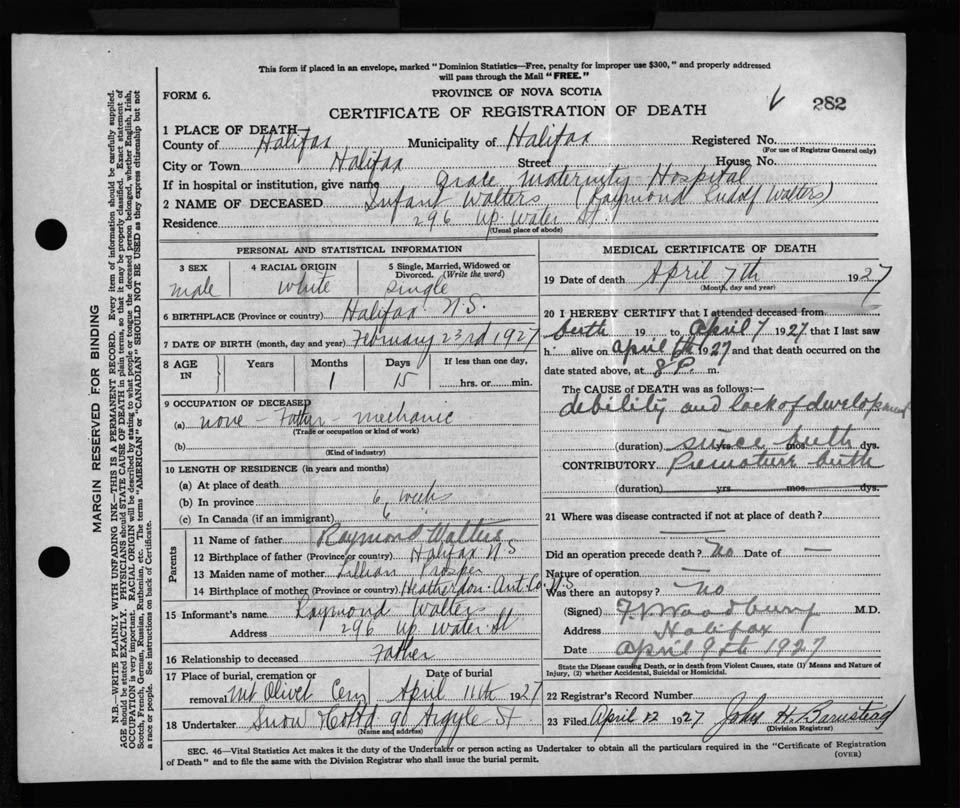 This form if placed in an envelope, marked "Dominion Statistics—Free, penalty for improper use $300," and properly addressed
will pass through the Mail "FREE."
FORM 6.
PROVINCE OF NOVA SCOTIA
CERTIFICATE OF REGISTRATION OF DEATH
282
1 PLACE OF DEATH
County of Halifax Municipality of Halifax Registered No.
(For use of Registrar General only)
City or Town Halifax Street House No.
If in hospital or institution, give name Grace Maternity Hospital
2 NAME OF DECEASED Infant Walters (Raymond Walters)
Residence 296 Up. Water St.
(Usual place of abode)
PERSONAL AND STATISTICAL INFORMATION
3 SEX 4 RACIAL ORIGIN 5 Single, Married, Widowed or
Divorced. (Write the word)
male white single
6 BIRTHPLACE (Province or country) Halifax N.S.
7 DATE OF BIRTH (month, day and year) February 23rd 1927
8 AGE IN Years Months Days If less than one day,
1 15 hrs. or min.
9 OCCUPATION OF DECEASED
(a) none - Father - mechanic
(Trade or occupation or kind of work)
(b)
(Kind of industry)
10 LENGTH OF RESIDENCE (in years and months)
(a) At place of death
(b) In province 6 weeks
(c) In Canada (if an immigrant) 6
Parents
11 Name of father Raymond Walters
12 Birthplace of father (Province or country) Halifax N S
13 Maiden name of mother Lillian Prosper
14 Birthplace of mother (Province or country) Heatherdon Ant. Co. N.S
15 Informant's name Raymond Walters
Address 296 Up Water St
16 Relationship to deceased Father
17 Place of burial, cremation or Date of burial
removal Mt Olivet Cem April 11th 1927
18 Undertaker Snow & Co Ltd 90 Argyle St
(Name and address)
MEDICAL CERTIFICATE OF DEATH
19 Date of death April 7th 1927
(Month, day and year)
20 I HEREBY CERTIFY that I attended deceased from
birth 19 to April 7 1927 that I last saw
h alive on April 6th 1927 and that death occurred on the
date stated above, at 8 P. m.
The CAUSE of DEATH was as follows:—
debility and lack of development
(duration) yrs. mos. dys. since birth
CONTRIBUTORY Premature birth
(duration) yrs. mos. dys.
21 Where was disease contracted if not at place of death?
—
Did an operation precede death? No Date of —
Nature of operation —
Was there an autopsy? No
(Signed) Woodbury M.D.
Address Halifax
Date April 9th 1927
State the Disease causing Death, or in death from Violent Causes, state (1) Means and Nature of
Injury, (2) whether Accidental, Suicidal or Homicidal.
22 Registrar's Record Number
23 Filed April 12 1927 John H. Barnstead
(Division Registrar)
SEC. 46—Vital Statistics Act makes it the duty of the Undertaker or person acting as Undertaker to obtain all the particulars required in the "Certificate of Registration
of Death" and to file the same with the Division Registrar who shall issue the burial permit.
(OVER)
MARGIN RESERVED FOR BINDING
N.B.—WRITE PLAINLY WITH UNFADING INK—THIS IS A PERMANENT RECORD. Every item of information should be carefully supplied.
AGE should be stated EXACTLY. PHYSICIANS should STATE CAUSE OF DEATH in plain terms, so that it may be properly classified. Exact statement of
OCCUPATION is very important. RACIAL ORIGIN will be described by stating to what people or tongue the deceased person belonged, whether English, Irish,
Scotch, French, German, Russian, Ruthenian, etc. The terms "AMERICAN" or "CANADIAN" SHOULD NOT BE USED as they express citizenship but not
a race or people. See instructions on back of Certificate.